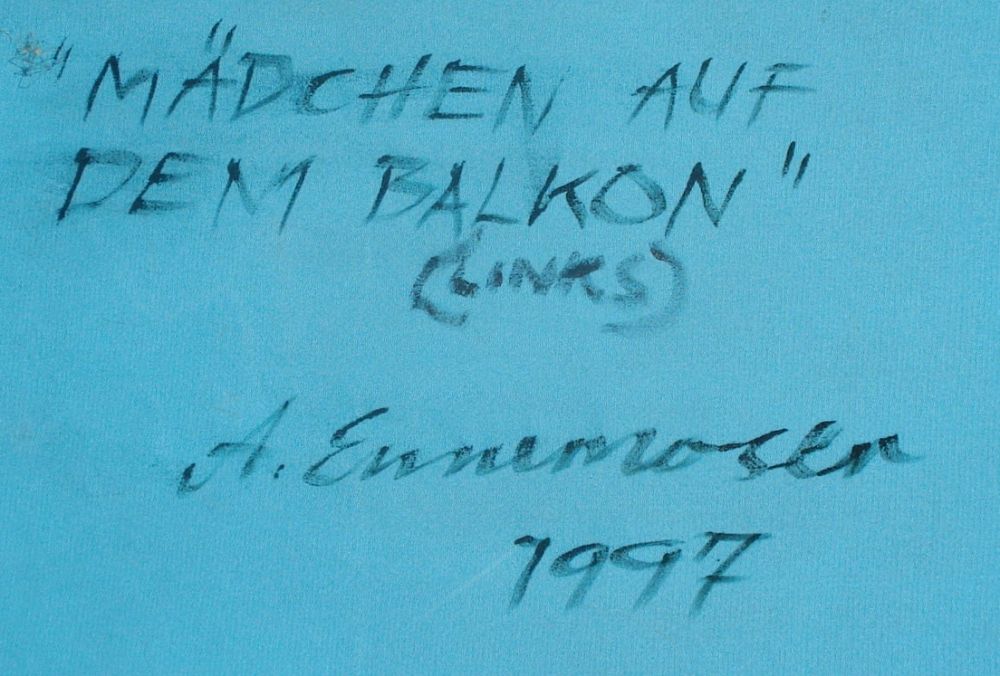 "MÄDCHEN AUF
DEM BALKON"
(LINKS)
A. Ennemoser
1997